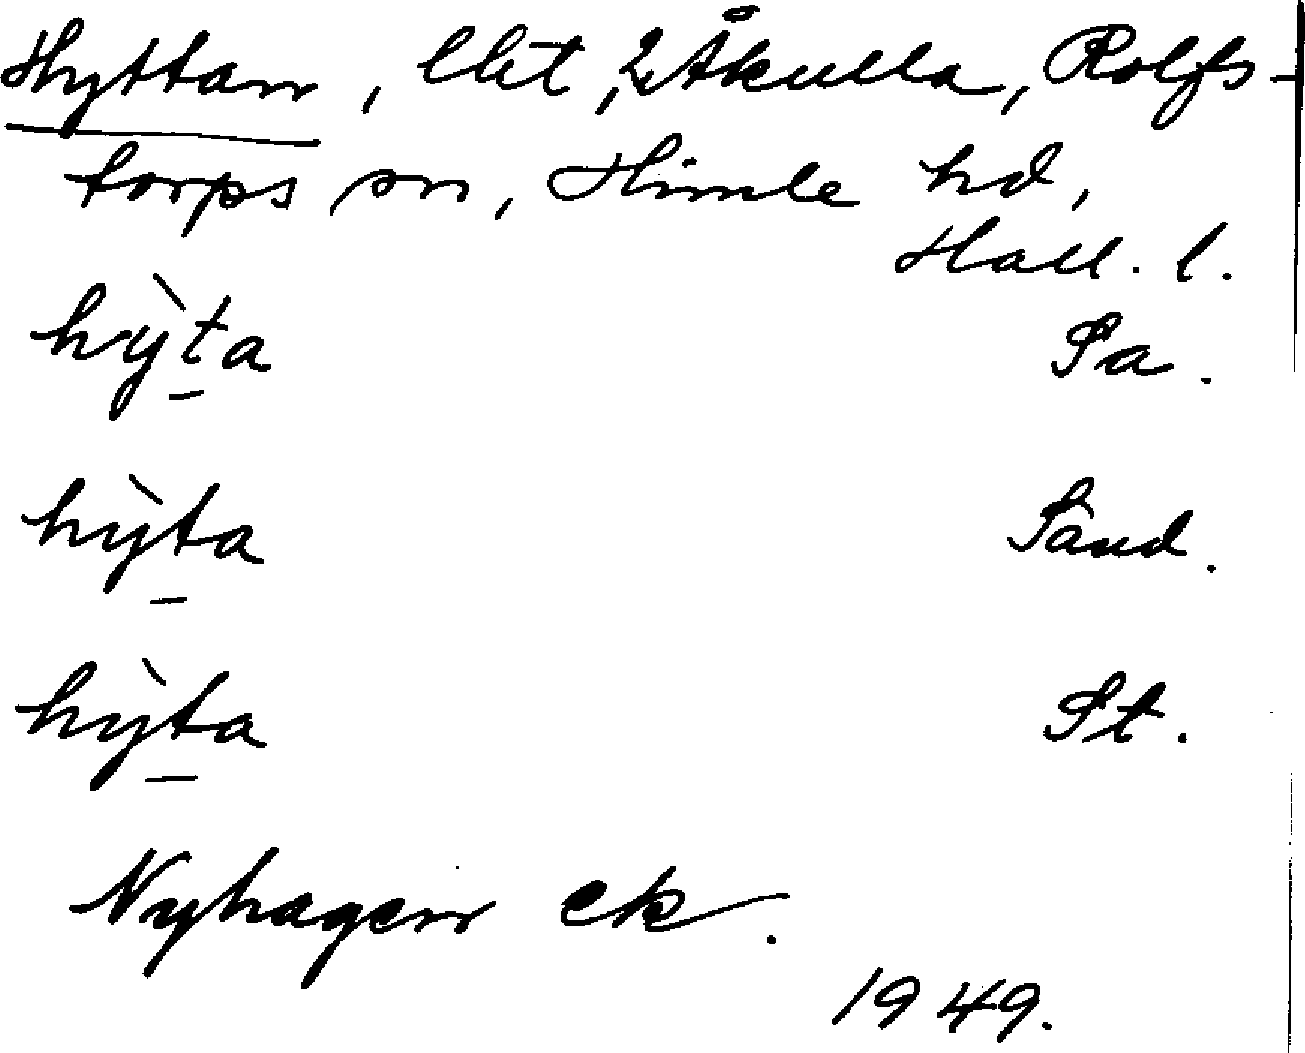 Hyttan, lht, 2 Åkulla, Rolfs-
torps sn, Himle hd,
Hall. l.
hỳta Sa.
hỳta Sand.
hỳta St.
Nyhagen ek.
1949.